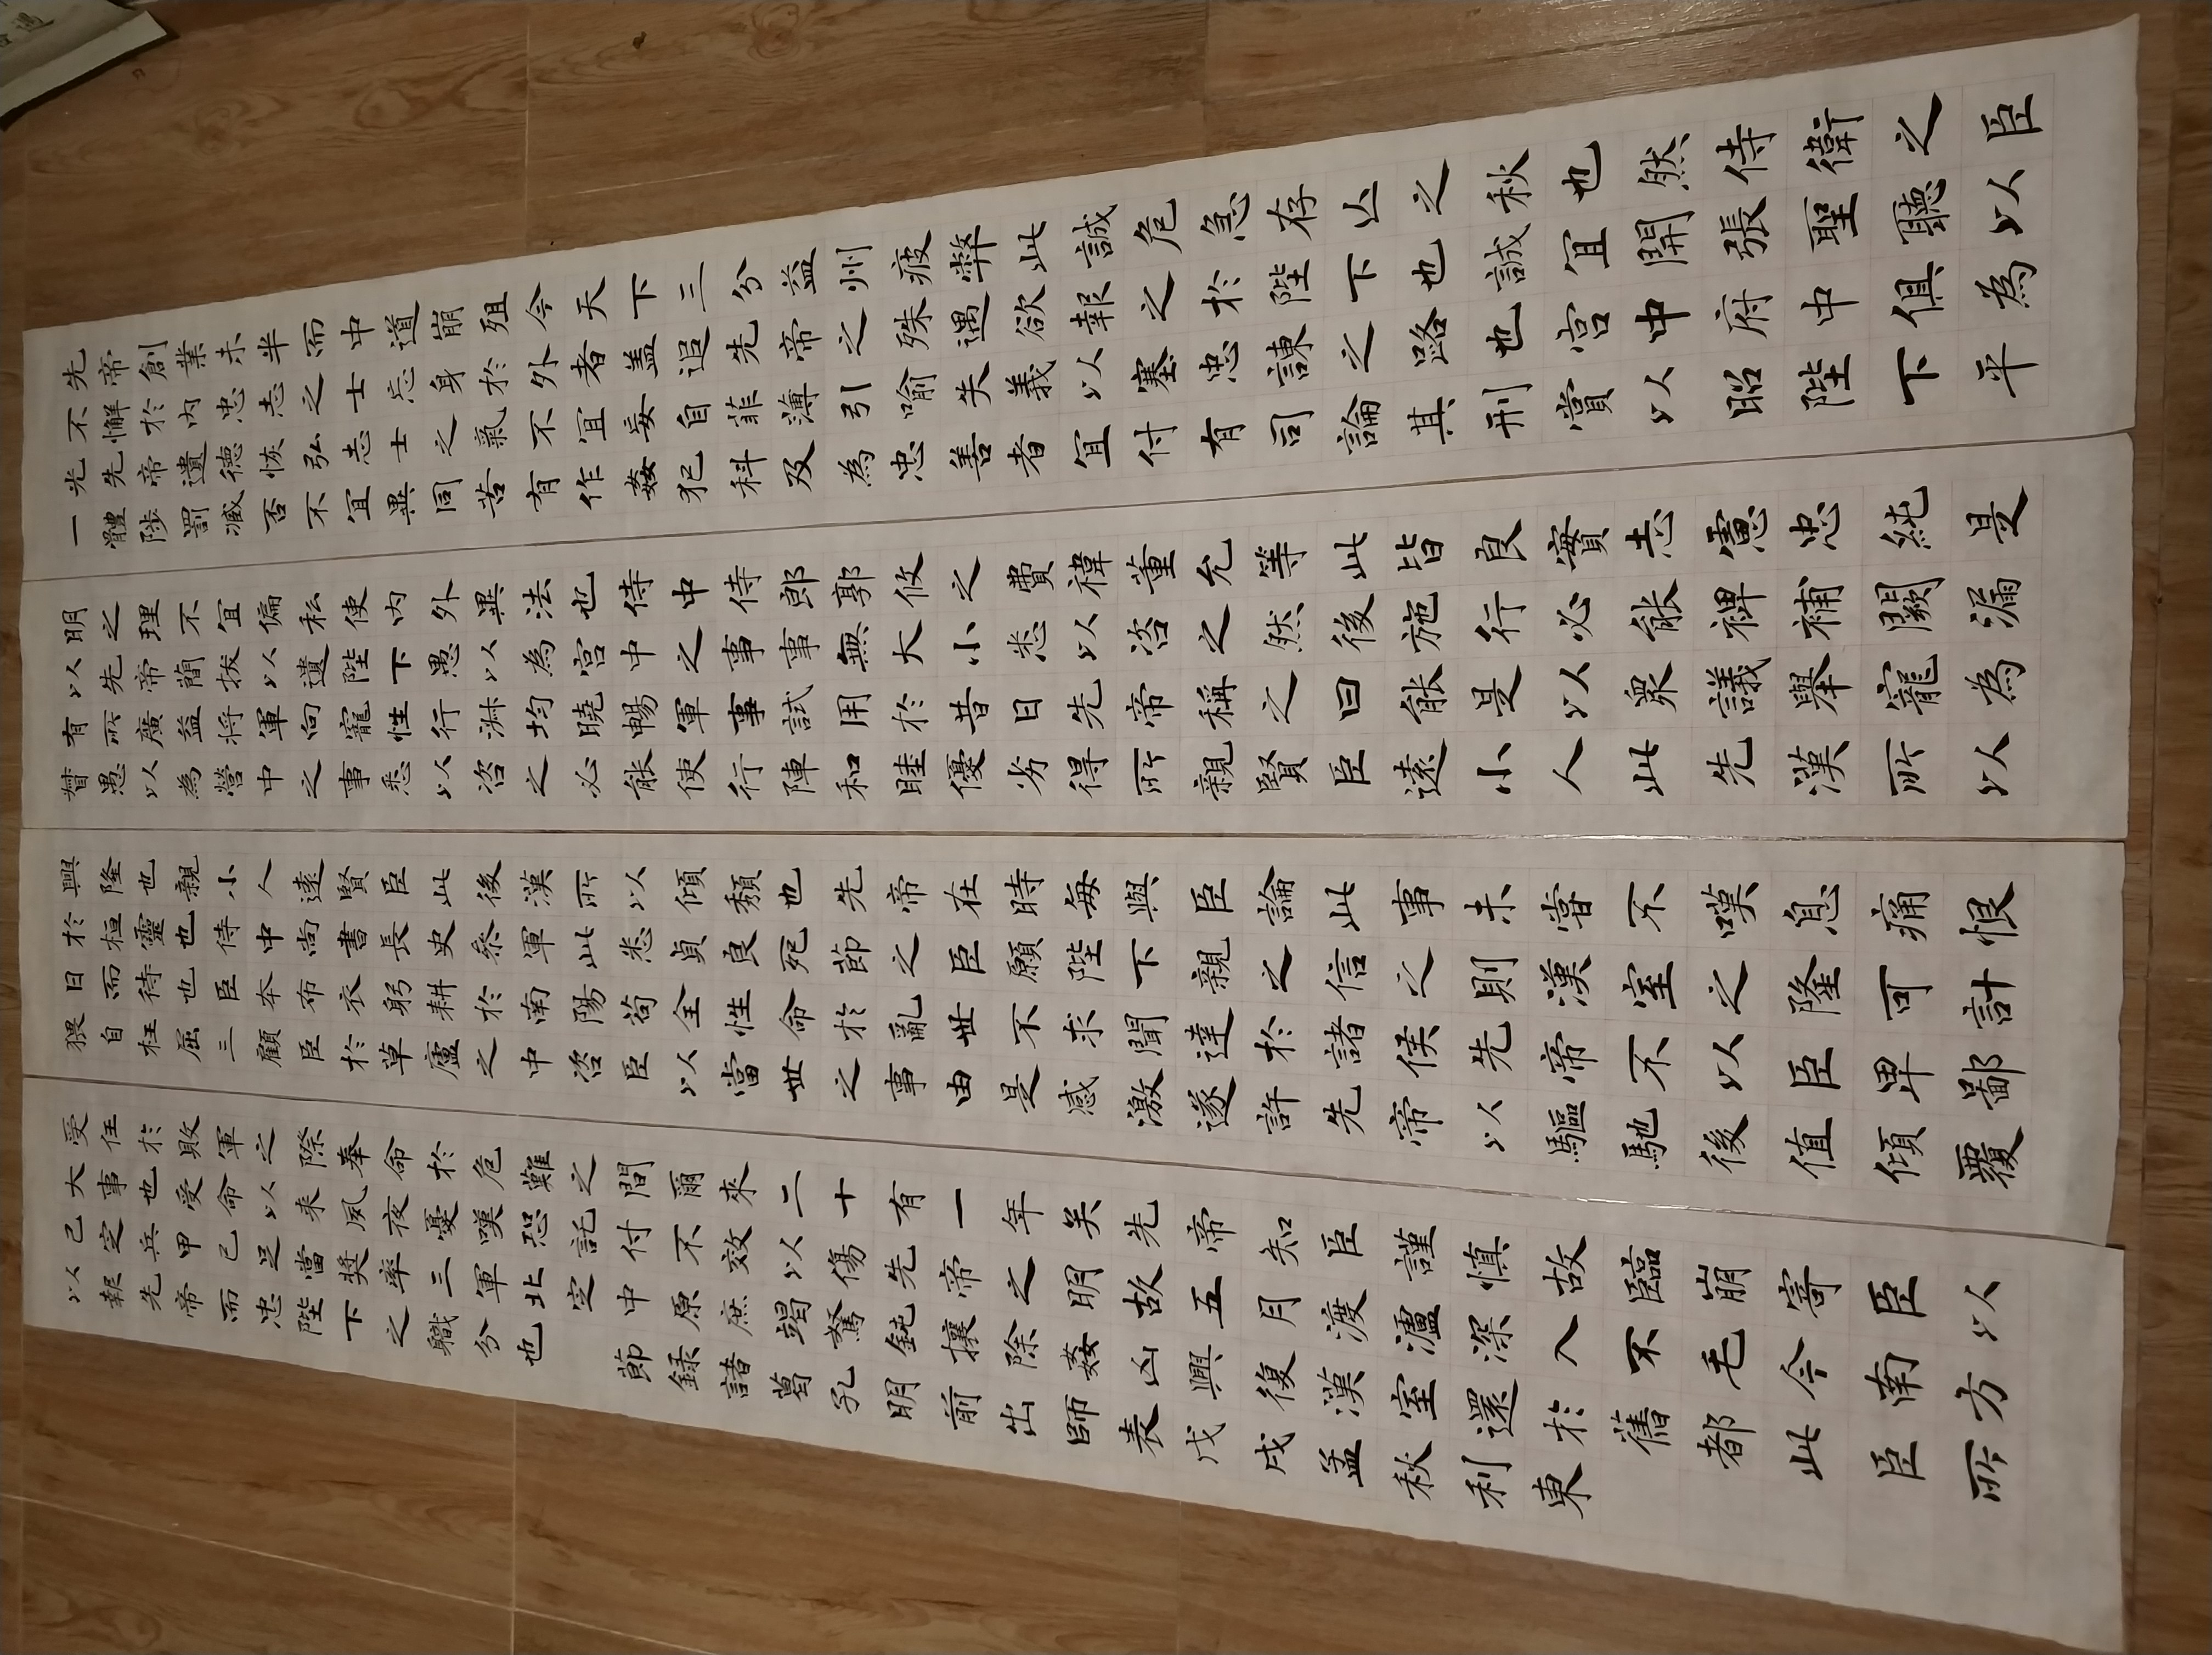 先帝創業未半而中道崩殂今天下三分益州疲弊此誠危急存亡之秋也然侍衛之臣
不懈於內忠志之士忘身於外者盖追先帝之殊遇欲報之於陛下也誠宜開張聖聽以
光先帝遺德恢弘志士之氣不宜妄自菲薄引喻失義以塞忠諫之路也宮中府中俱為
一體陟罰臧否不宜異同若有作姦犯科及為忠善者宜付有司論其刑賞以昭陛下平
明之理不宜偏私使內外異法也侍中侍郎郭攸之費禕董允等此皆良實志慮忠純是
以先帝簡拔以遺陛下愚以為宮中之事事無大小悉以咨之然後施行必能裨補闕漏
有所廣益将軍向寵性行淑均曉暢軍事試用於昔日先帝稱之曰能是以眾議舉寵為
督愚以為營中之事悉以咨之必能使行陣和睦優劣得所親賢臣遠小人此先漢所以
興隆也親小人遠賢臣此後漢所以傾頹也先帝在時每與臣論此事未嘗不嘆息痛恨
於桓靈也侍中尚書長史參軍此悉貞良死節之臣願陛下親之信之則漢室之隆可計
日而待也臣本布衣躬耕於南陽苟全性命於亂世不求聞達於諸侯先帝不以臣卑鄙
猥自枉屈三顧臣於草廬之中咨臣以當世之事由是感激遂許先帝以驅馳後值傾覆
受任於敗軍之際奉命於危難之間爾來二十有一年矣先帝知臣謹慎故臨崩寄臣以
大事也受命以来夙夜憂嘆恐託付不效以傷先帝之明故五月渡瀘深入不毛今南方
已定兵甲已足當獎率三軍北定中原庶竭駑鈍攘除姦凶興復漢室還於舊都此臣所
以報先帝而忠陛下之職分也節録諸葛孔明前出師表戊戌孟秋利東